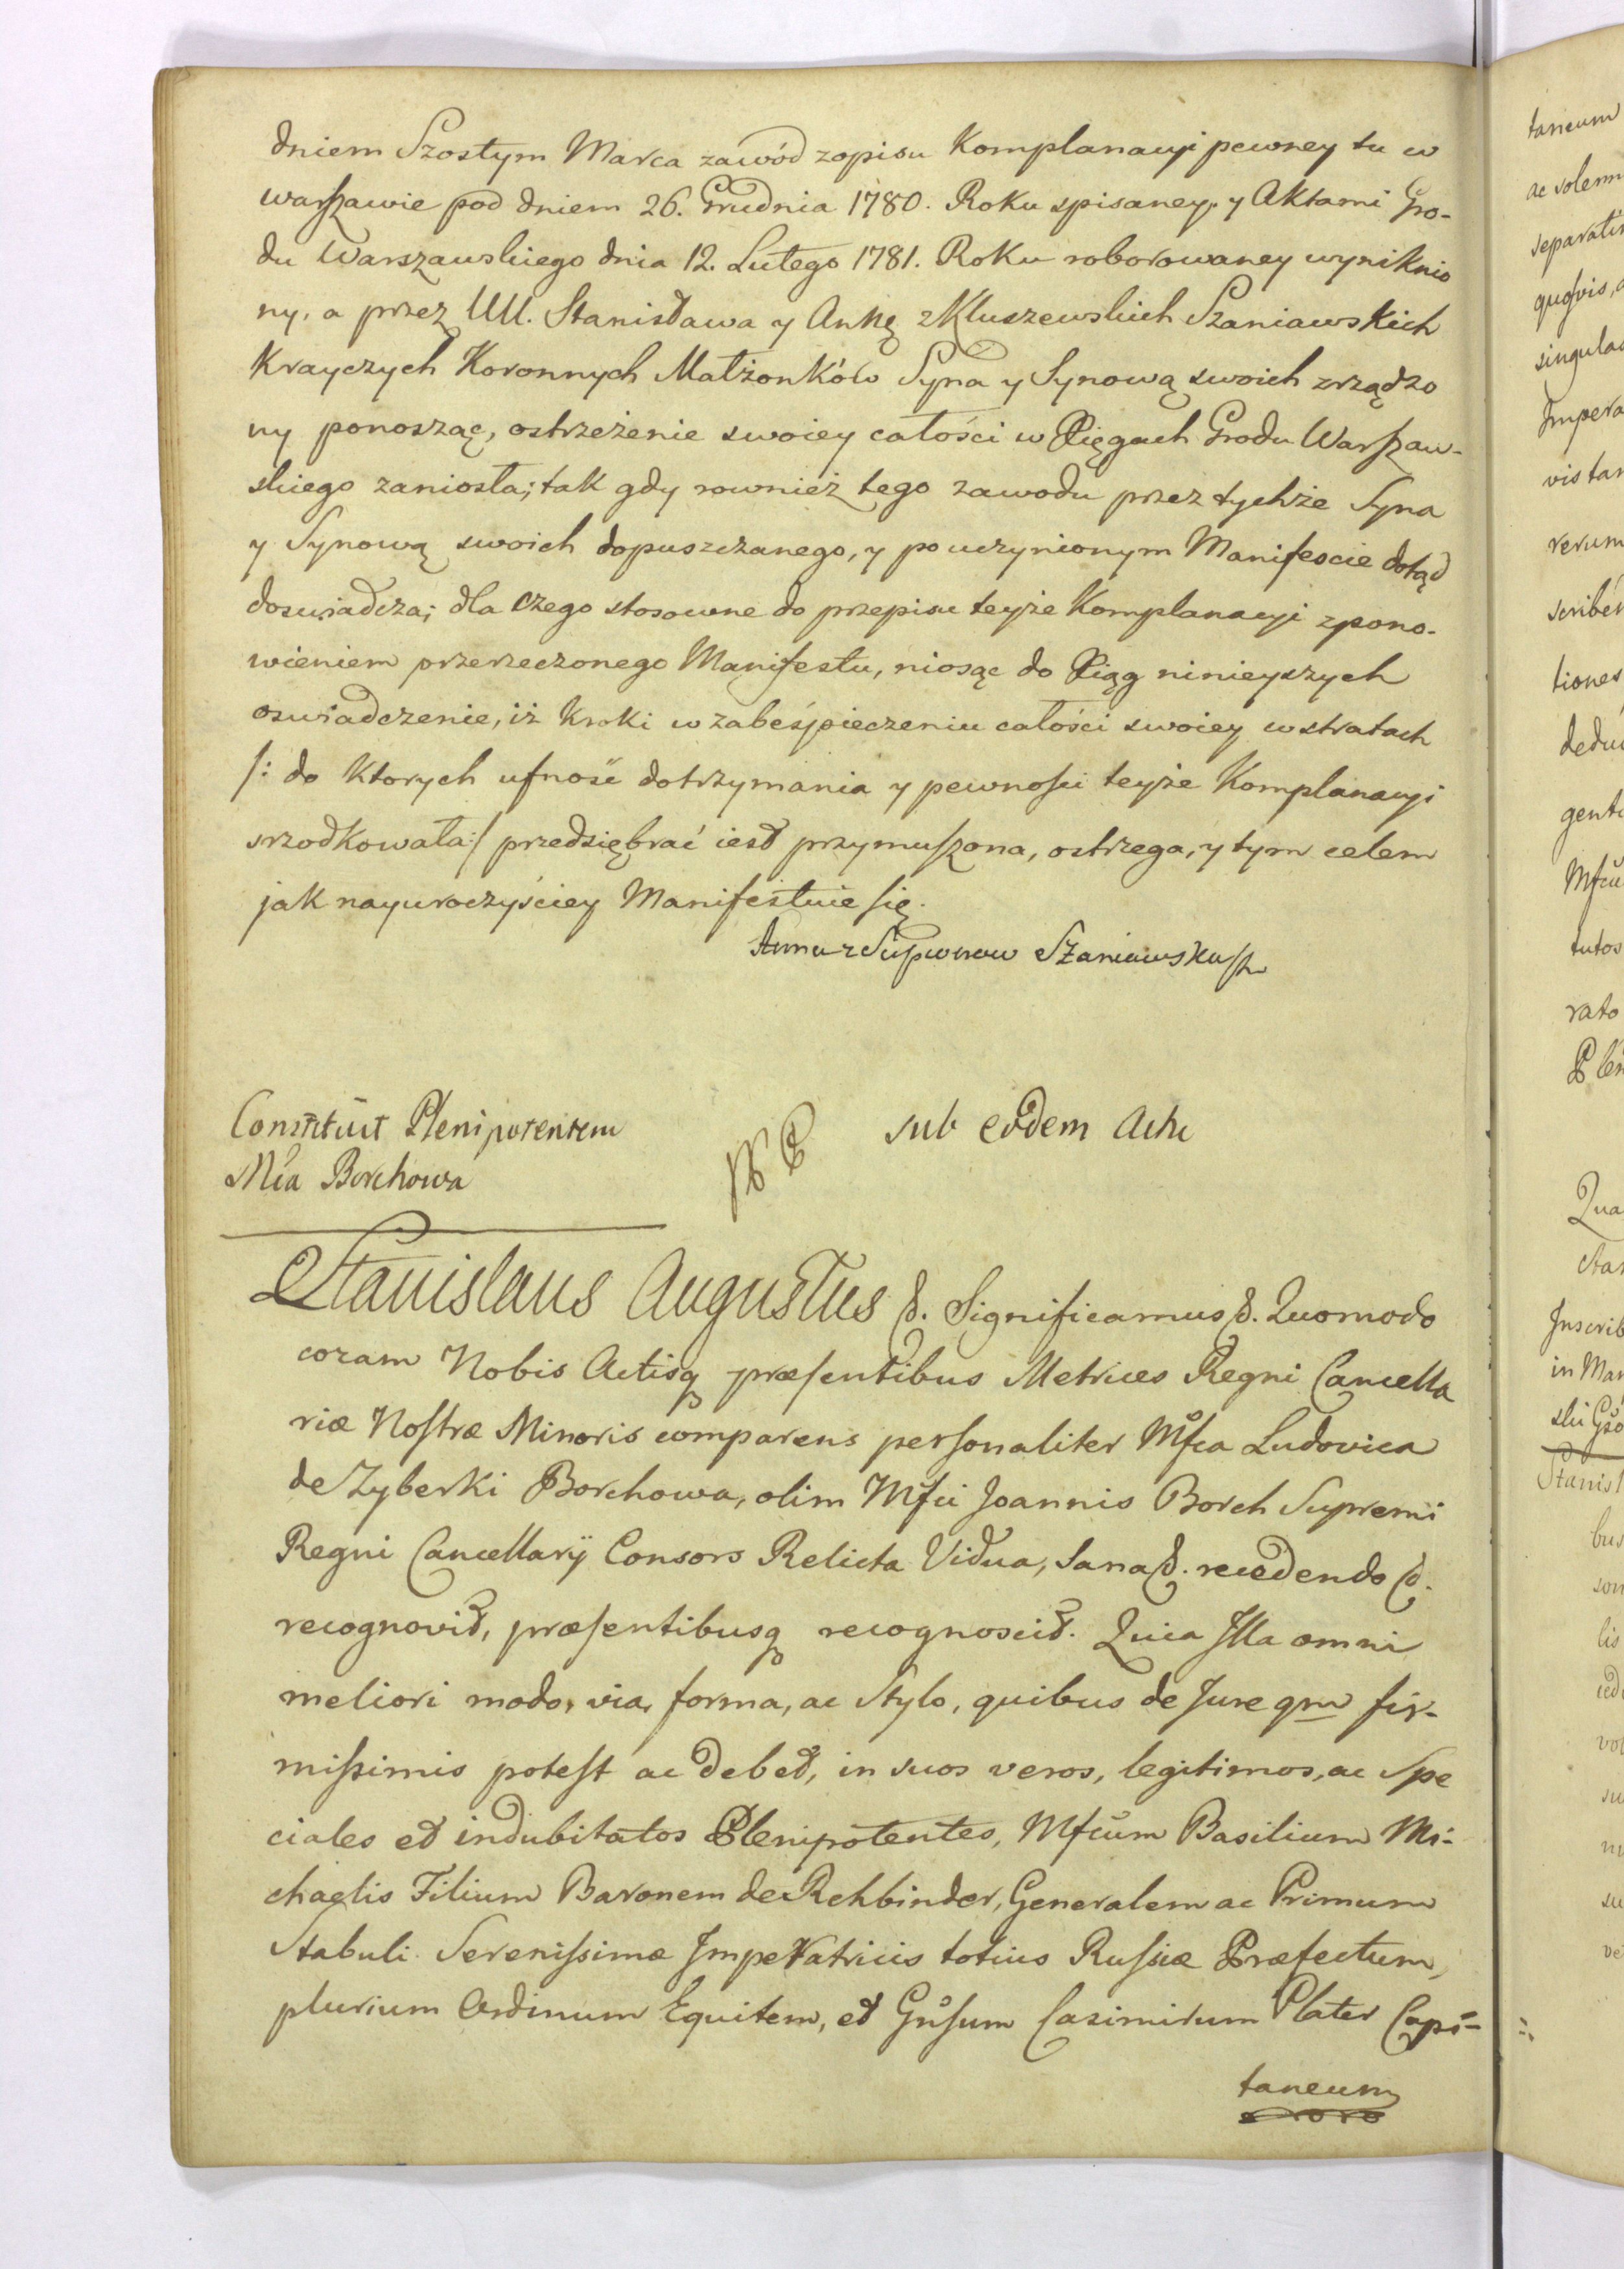 dniem Szostym Marca zawód zopisu Komplanacyi pewney tu w
warszawie pod dniem 26. Grudnia 1780. Roku spisaney, y Aktami Gro-
du Warszawskiego dnia 12. Lutego 1781. Roku roborowaney wyniknio
ny, a przez UU. Stanisława y Annę z Kluszewskich Szaniawskich
Krayczych Koronnych Małżonków Syna y Synową swoich zrządzo
ny ponosząc, ostrzeżenie swoiey całości w Xięgach Grodu Warszaw-
skiego zaniosła; tak gdy rownież tego zawodu przez tychże Syna
y Synową swoich dopuszczanego, y po uczynionym Manifescie dotąd
doswiadcza; dla czego stosowne do przepisu teyże Komplanacyi z pono-
wieniem przerzeczonego Manifestu, niosąc do Xiąg ninieyszych
oswiadczenie, iż kroki w zabeśpieczeniu całości swoiey w stratach
/: do Ktorych ufność dotrzymania y pewności teyże Komplanacyi
srzodkowała :/ przedsiębrać iest przymuszona, ostrzega, y tym celem
jak nayuroczyściey Manifestuie się.
Anna z Szaniawska
Constituit Plenipotentem
Mfca Borchowa
sub eodem Actu
Stanislaus Augustus &. Significamus &. Quomodo
coram Nobis Actisq præsentibus Metrices Regni Cancella
riæ Nostræ Minoris comparens personaliter Mfca Ludovica
de Zyberki Borchowa, olim Mfci Joannis Borch Supremi
Regni Cancellarÿ Consors Relicta Vidua, Sana &. recedendo &.
recognovit, præsentibusq recognoscit. Quia Illa omni
meliori modo, via, forma, ac Stylo, quibus de Jure qm fir-
missimis potest ac debet, in suos veros, legitimos, ac Spe
ciales et indubitatos Plenipotentes, Mfcum Basilium Mi-
chaelis Filium Baronem de Rehbinder, Generalem ac Primum
Stabuli Serenissimæ Imperatricis totius Russiæ Præfectum,
plurium Ordinum Equitem, et Gnsum Casimirum Plater Capi-
taneum
taneum
ac solenn
quosvis,
vis tan
rerum
tiones
Mfcu
tutos
rato
Qua
Inscrib
in Man
Stanisl
bus
lis